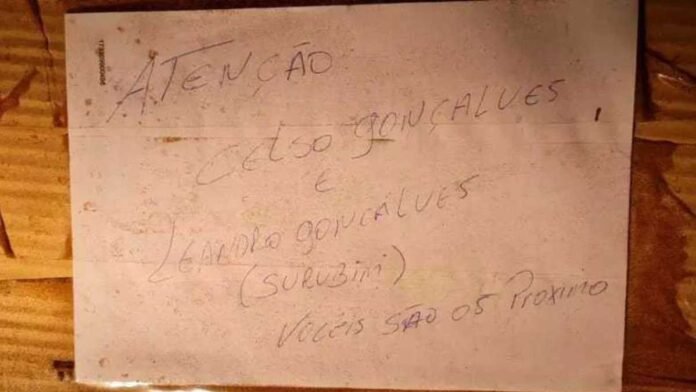 ATENÇÃO
CELSO GONÇALVES
E
LEANDRO GONÇALVES
(SURUBIM)
VOCÊIS SÃO OS PROXIMO